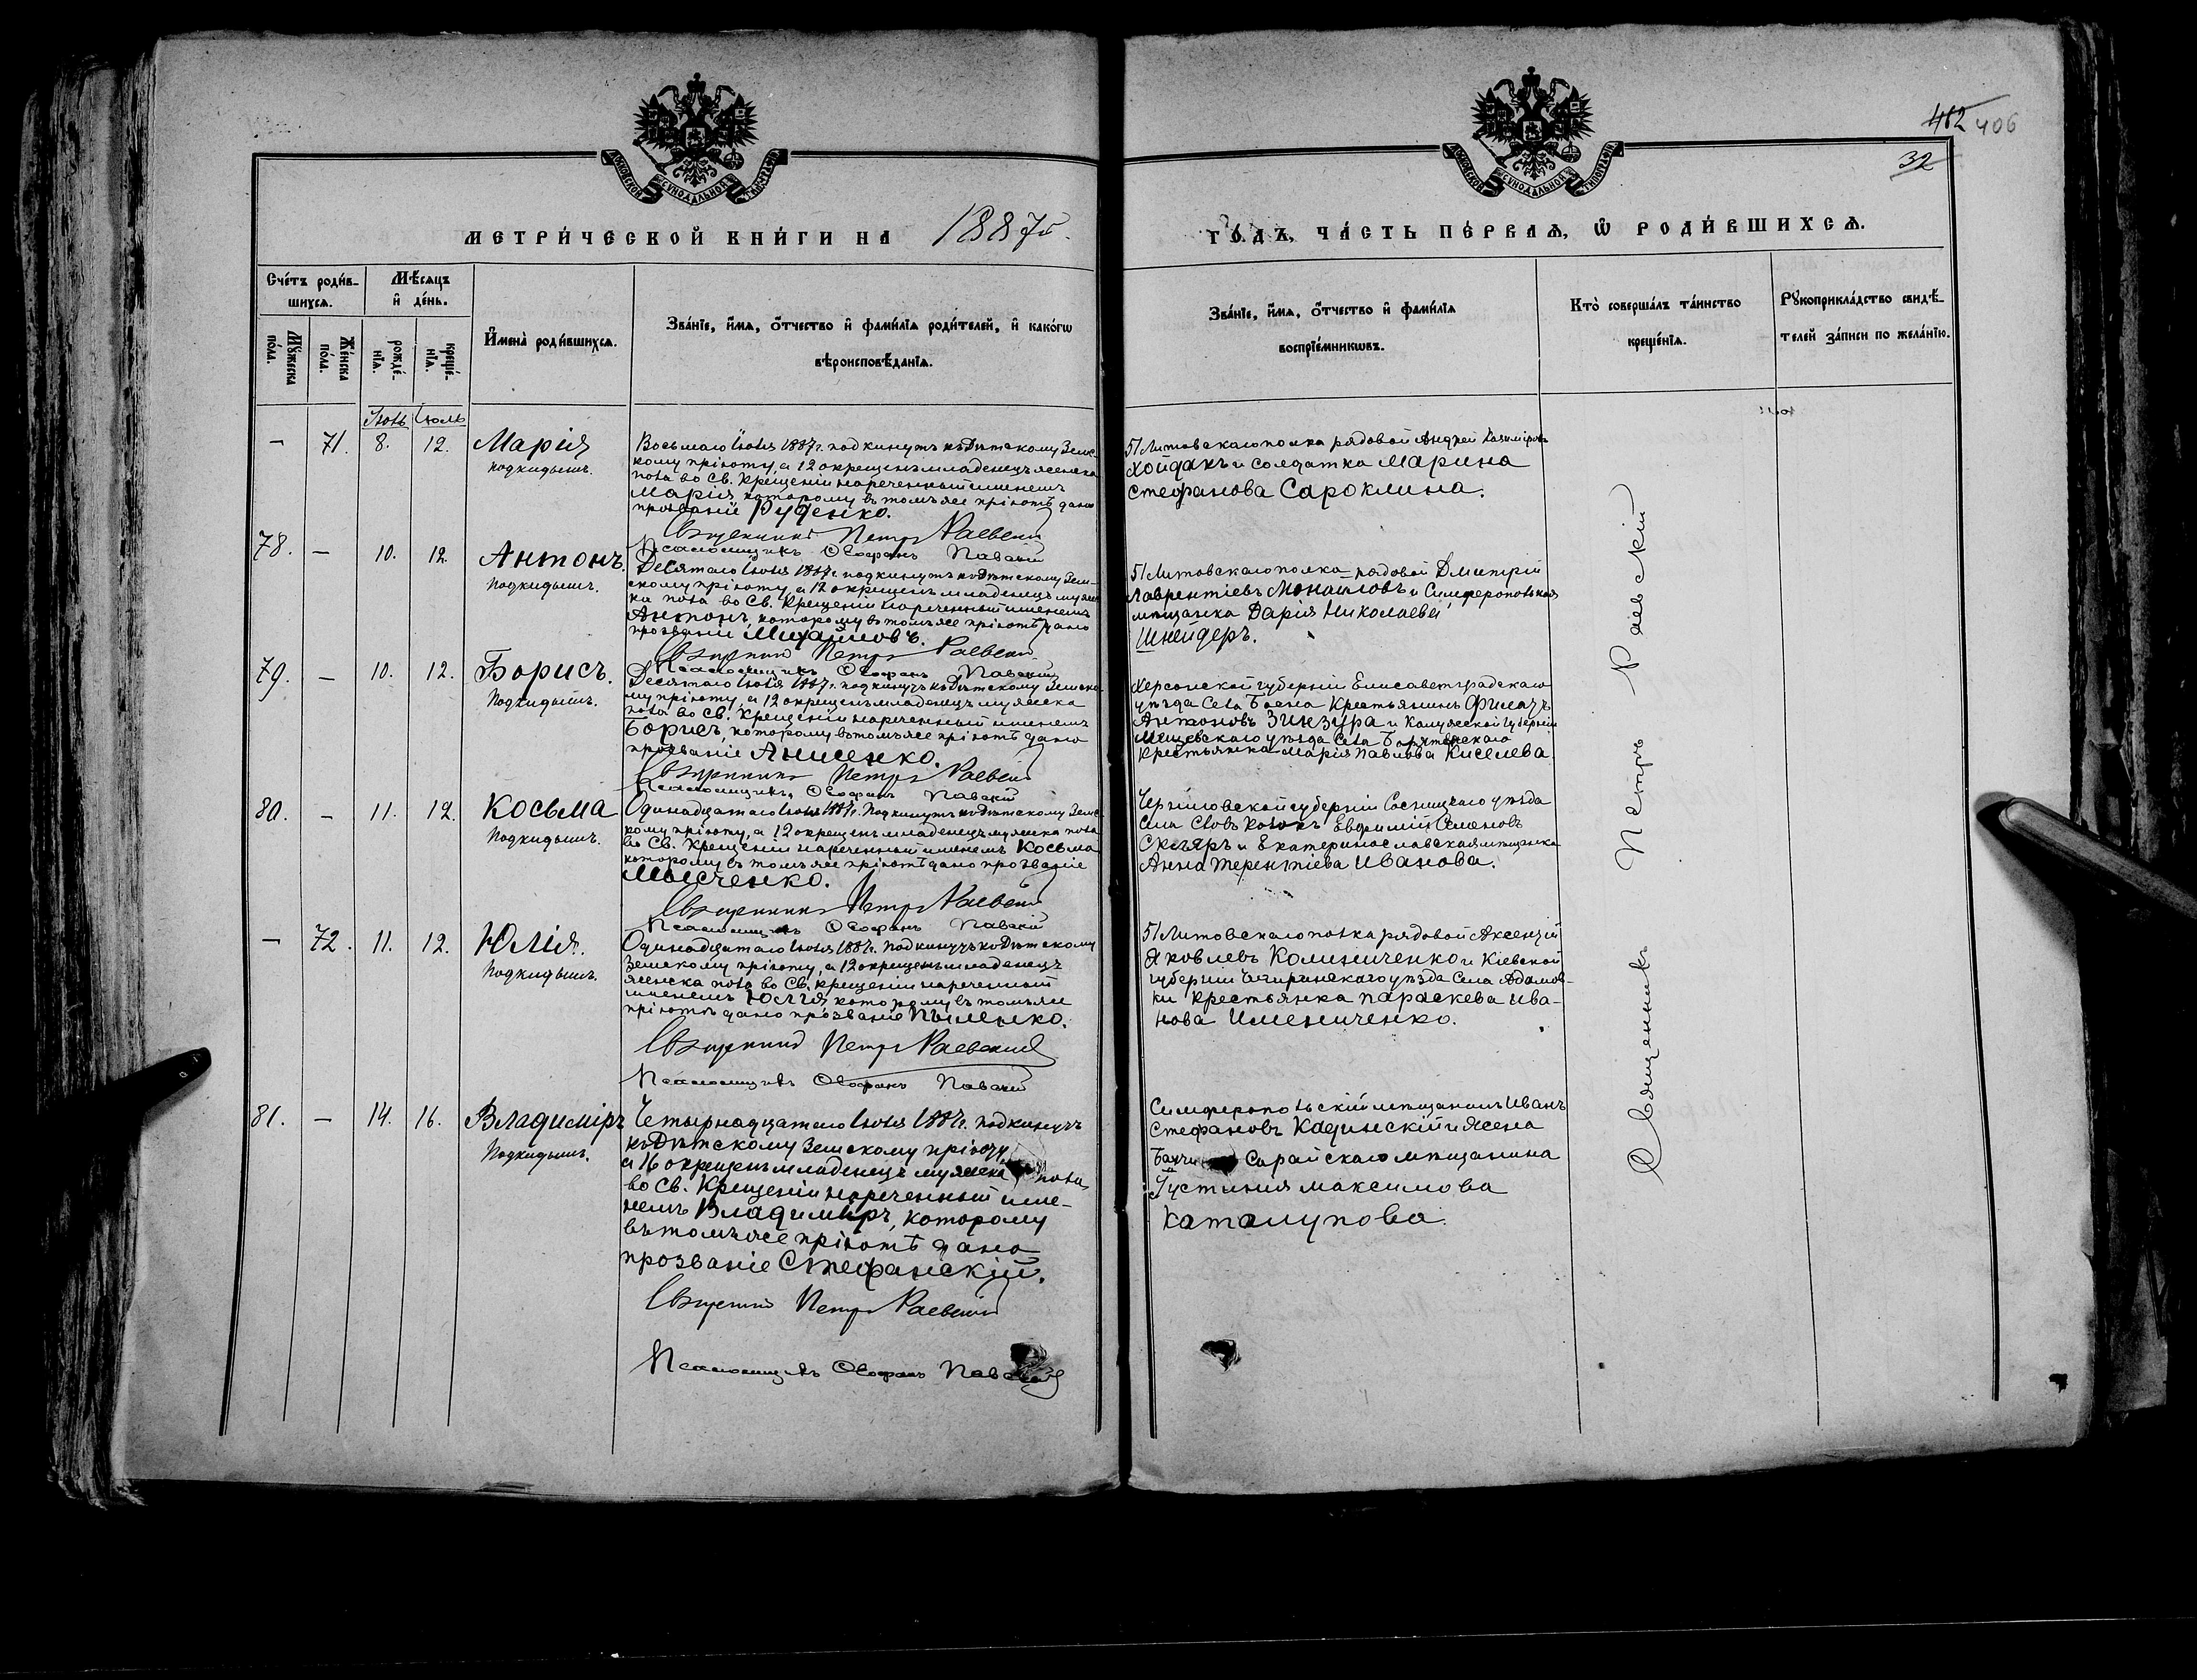 412 406
32
МОСКОВСКОЙ СѴНОДАЛЬНОЙ ТИПОГРАФІИ
МОСКОВСКОЙ СѴНОДАЛЬНОЙ ТИПОГРАФІИ
МЕТРИ́ЧЕСКОЙ КНИ́ГИ НА 1887 г.
ГО́ДЪ, ЧА́СТЬ ПЕ́РВАѦ, Ѡ РОДИ́ВШИХСѦ.
Сче́тъ роди́в-
шихсѧ.
Мѣ́сѧцъ
и҆ де́нь.
Мꙋ́жеска
по́ла.
Же́нска
по́ла.
рожде́-
нїѧ.
креще́-
нїѧ.
И҆мена̀ роди́вшихсѧ.
Зва́нїе, и҆́мѧ, ѻ҆́тчество и҆ фами́лїѧ роди́телей, и҆ како́гѡ
вѣроисповѣ́данїѧ.
Зва́нїе, и҆́мѧ, ѻ҆́тчество и҆ фами́лїѧ
воспрїе́мникѡвъ.
Кто̀ соверша́лъ та́инство
креще́нїѧ.
Рꙋкоприкла́дство свидѣ́-
телей за́писи по жела́нїю.
Іюль Іюль
— 71. 8. 12. Марія
подкидышъ.
Восьмаго Іюля 1887 г. подкинутъ къ Дѣтскому Земс-
кому пріюту, а 12 окрещенъ младенецъ женска
пола во Св. Крещеніи нареченный именемъ
Марія, которому въ томъ же пріютѣ дано
прозваніе Руденко.
Священникъ Петръ Раевскій
Псаломщикъ Ѳеофанъ Павскій
51 Литовскаго полка рядовой Андрей
Хойдакъ и солдатка Марина
Стефанова Сароклина.
78. — 10. 12. Антонъ.
Подкидышъ.
Десятаго Іюля 1887 г. подкинутъ къ Дѣтскому Зем-
скому пріюту, а 12 окрещенъ младенецъ мужес-
ка пола во Св. Крещеніи нареченный именемъ
Антонъ, которому въ томъ же пріютѣ дано
прозваніе Михайловъ.
Священникъ Петръ Раевскій
Псаломщикъ Ѳеофанъ Павскій
51 Литовскаго полка рядовой Дмитрій
Лаврентіевъ и Симферопольская
мѣщанка Дарія Николаева
Шнейдеръ.
79. — 10. 12. Борисъ.
Подкидышъ.
Десятаго Іюля 1887 г. подкинутъ къ Дѣтскому Земско-
му пріюту, а 12 окрещенъ младенецъ мужеска
пола во Св. Крещеніи нареченный именемъ
Борисъ, которому въ томъ же пріютѣ дано
прозваніе Анисенко.
Священникъ Петръ Раевскій
Псаломщикъ Ѳеофанъ Павскій
Херсонской губерніи Елисаветградскаго
уѣзда Села Крестьянинъ Филатъ
Антоновъ Зинзура и Калужской Губерніи
Мещевскаго уѣзда Села
Крестьянка Марія Павлова Киселева.
80. — 11. 12. Косьма
Подкидышъ.
Одинадцатаго Іюля 1887 г. Подкинутъ къ Дѣтскому Земс-
кому пріюту, а 12 окрещенъ младенецъ мужеска пола
во Св. Крещеніи нареченный именемъ Косьма
которому въ томъ же пріютѣ дано прозваніе
Мысченко.
Священникъ Петръ Раевскій
Псаломщикъ Ѳеофанъ Павскій
Черниговской губерніи Сосницкаго уѣзда
Села Евфимій Семеновъ
Скляръ и Екатеринославская мѣщанка
Анна Терентіева Иванова.
— 72. 11. 12. Юлія.
Подкидышъ.
Одинадцатаго Іюля 1887 г. подкинутъ къ Дѣтскому
Земскому пріюту, а 12 окрещенъ младенецъ
женска пола во Св. Крещеніи нареченный
именемъ Юлія, которому въ томъ же
пріютѣ дано прозваніе Пыленко.
Священникъ Петръ Раевскій
Псаломщикъ Ѳеофанъ Павскій
51 Литовскаго полка рядовой Аксентій
Яковлевъ Калиниченко и Кіевской
губерніи Чигиринскаго уѣзда Села Адамов-
ки крестьянка Параскева Ива-
нова Имениченко.
81. — 14. 16. Владиміръ
Подкидышъ.
Четырнадцатаго Іюля 1887 г. подкинутъ
къ Дѣтскому Земскому пріюту,
а 16 окрещенъ младенецъ мужеска пола
во Св. Крещеніи нареченный име-
немъ Владиміръ, которому
въ томъ же пріютѣ дано
прозваніе Стефанскій.
Священникъ Петръ Раевскій
Псаломщикъ Ѳеофанъ Павскій
Симферопольскій мѣщанинъ Иванъ
Стефановъ Кадинскій и жена
Сарайскаго мѣщанина
Іустинія Максимова
Каталупова.
Священникъ Петръ Раевскій